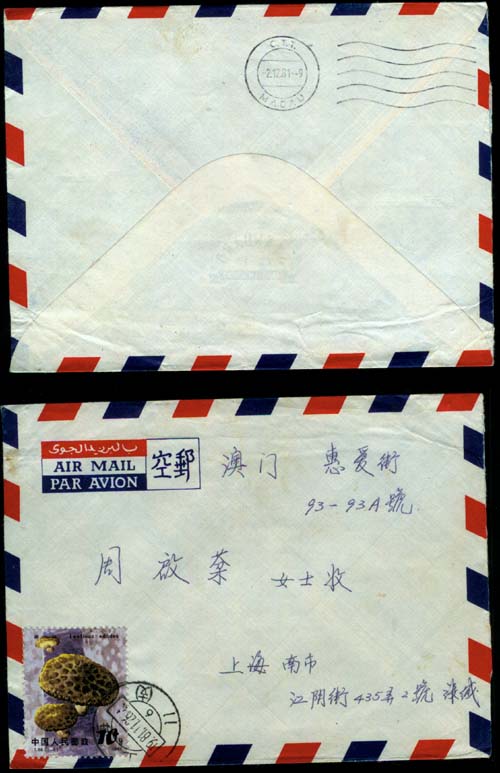 C.T.T.
-2.12.81--9
MACAU
بالبريد الجوى
AIR MAIL
PAR AVION
空郵
澳门 惠爱街
93-93A號
周啟葉 女士收
上海南市
江阴街435弄2號
Lentinus edodes
中国人民邮政
10